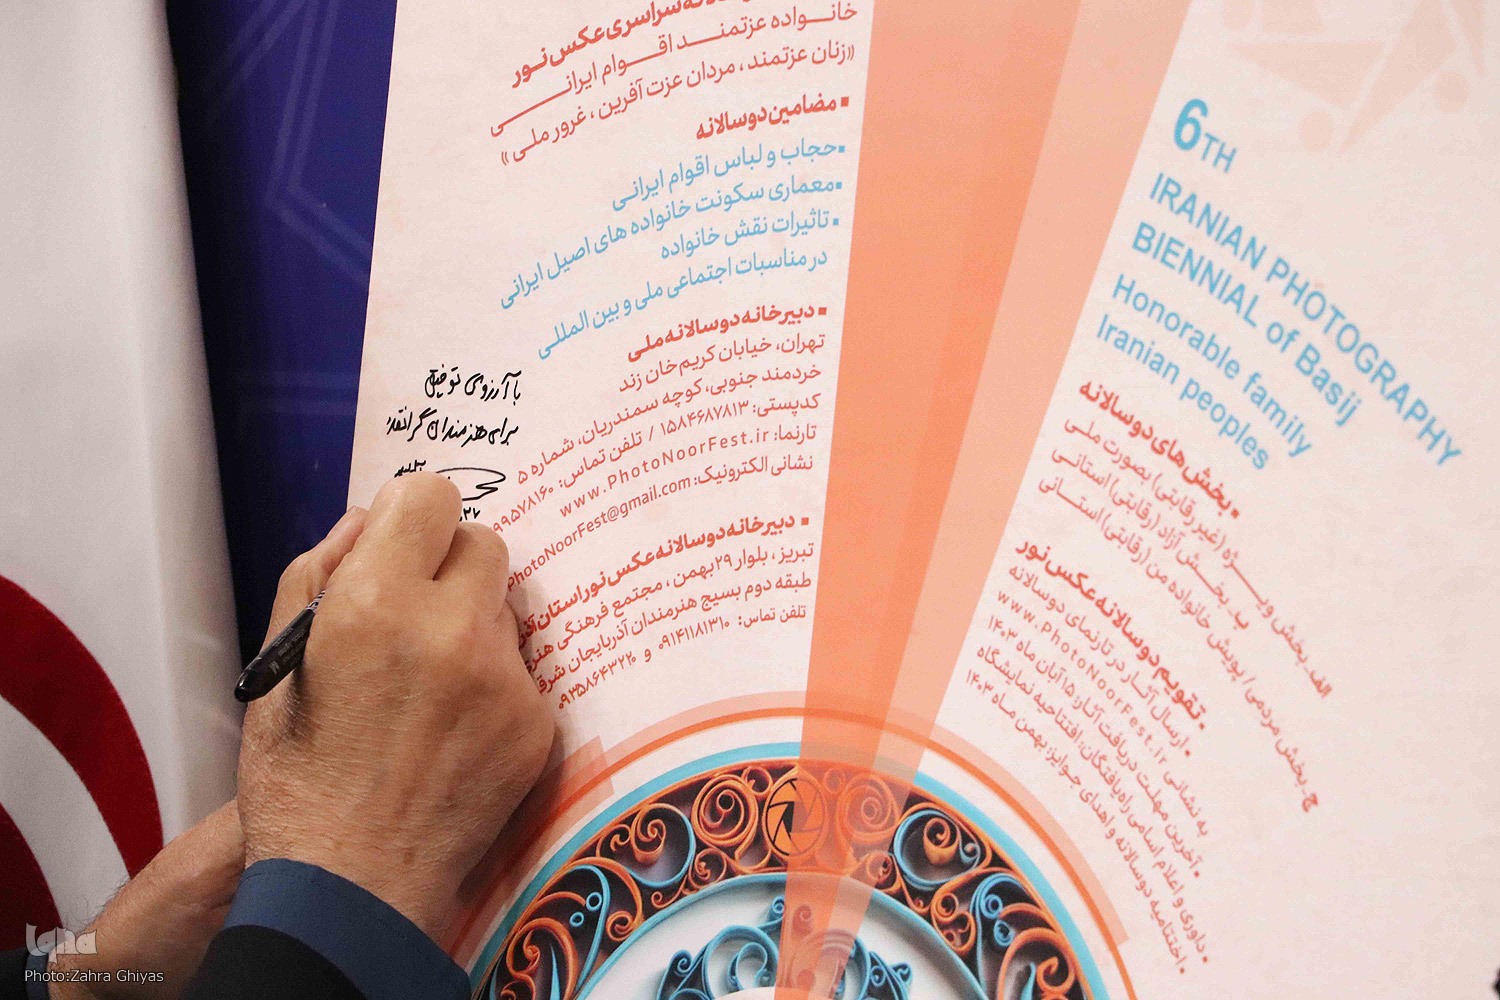 سراسری عکس نور
خانواده عزتمند اقوام ایرانی
«زنان عزتمند، مردان عزت آفرین، غرور ملی»
▪ مضامین دوسالانه
▪حجاب و لباس اقوام ایرانی
▪معماری سکونت خانواده های اصیل ایرانی
▪تاثیرات نقش خانواده
در مناسبات اجتماعی ملی و بین المللی
▪ دبیرخانه دوسالانه ملی
تهران، خیابان کریم خان زند
خردمند جنوبی، کوچه سمندریان، شماره ۵
کدپستی: ۱۵۸۴۶۸۷۸۱۳ / تلفن تماس: ۹۹۵۷۸۱۶۰
تارنما: www.PhotoNoorFest.ir
نشانی الکترونیک: PhotoNoorFest@gmail.com
▪ دبیرخانه دوسالانه عکس نور استان آذر
تبریز، بلوار ۲۹بهمن، مجتمع فرهنگی هنری
طبقه دوم بسیج هنرمندان آذربایجان شرقی
تلفن تماس: ۰۹۱۴۱۱۸۱۳۱۰ و ۰۹۳۵۸۶۴۳۲۲۰
با آرزوی توفیق
برای هنرمندان گرانقدر
6TH
IRANIAN PHOTOGRAPHY
BIENNIAL of Basij
Honorable family
Iranian peoples
▪بخش های دوسالانه
الف. بخش ویــژه (غیر رقابتی) بصورت ملی
ب. بخــش آزاد (رقابتی) استانی
ج. بخش مردمی / پویش خانواده من (رقابتی) استــانی
▪تقویم دوسالانه عکس نور
▪ارسال آثــار در تارنمای دوسالانه
به نشانی www.PhotoNoorFest.ir
▪آخرین مهلت دریافت آثار: ۱۵ آبان ماه ۱۴۰۳
▪داوری و اعلام اسامی راه یافتگان، افتتاحیه نمایشگاه
▪اختتامیه دوسالانه و اهدای جوایز: بهمن ماه ۱۴۰۳
iqna
Photo:Zahra Ghiyas